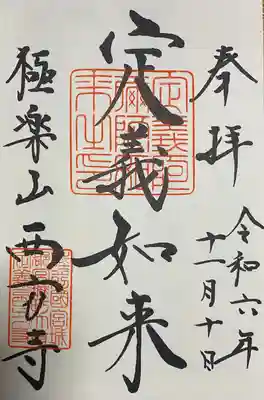 奉拝
令和六年
十一月十日
定義如来
極楽山西方寺